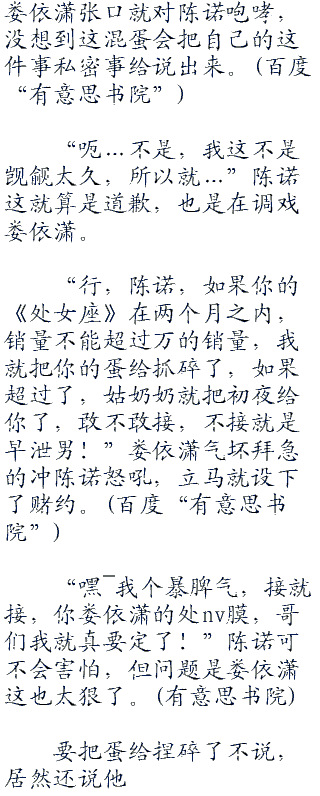 娄依潇张口就对陈诺咆哮，
没想到这混蛋会把自己的这
件事私密事给说出来。(百度
“有意思书院”)
“呃…不是，我这不是
觊觎太久，所以就…”陈诺
这就算是道歉，也是在调戏
娄依潇。
“行，陈诺，如果你的
《处女座》在两个月之内，
销量不能超过万的销量，我
就把你的蛋给抓碎了，如果
超过了，姑奶奶就把初夜给
你了，敢不敢接，不接就是
早泄男！”娄依潇气坏拜急
的冲陈诺怒吼，立马就设下
了赌约。(百度“有意思书
院”)
“嘿¯我个暴脾气，接就
接，你娄依潇的处nv膜，哥
们我就真要定了！”陈诺可
不会害怕，但问题是娄依潇
这也太狠了。(有意思书院)
要把蛋给捏碎了不说，
居然还说他